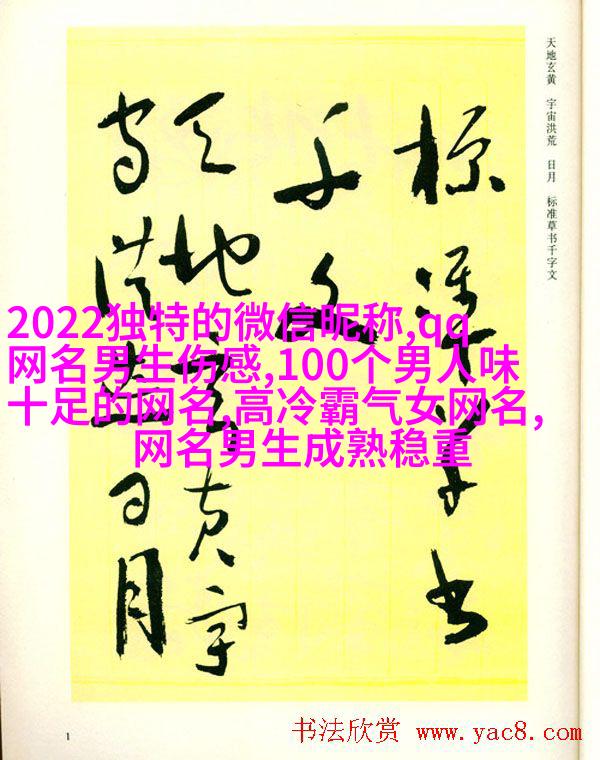 天地玄黄 宇宙洪荒 日月 标准草书千字文
标准草书
千文
天地玄黄宇
宙洪荒日月
2022独特的微信昵称,qq
网名男生伤感,100个男人味
十足的网名,高冷霸气女网名,
网名男生成熟稳重
1
书法欣赏 www.yac8.com